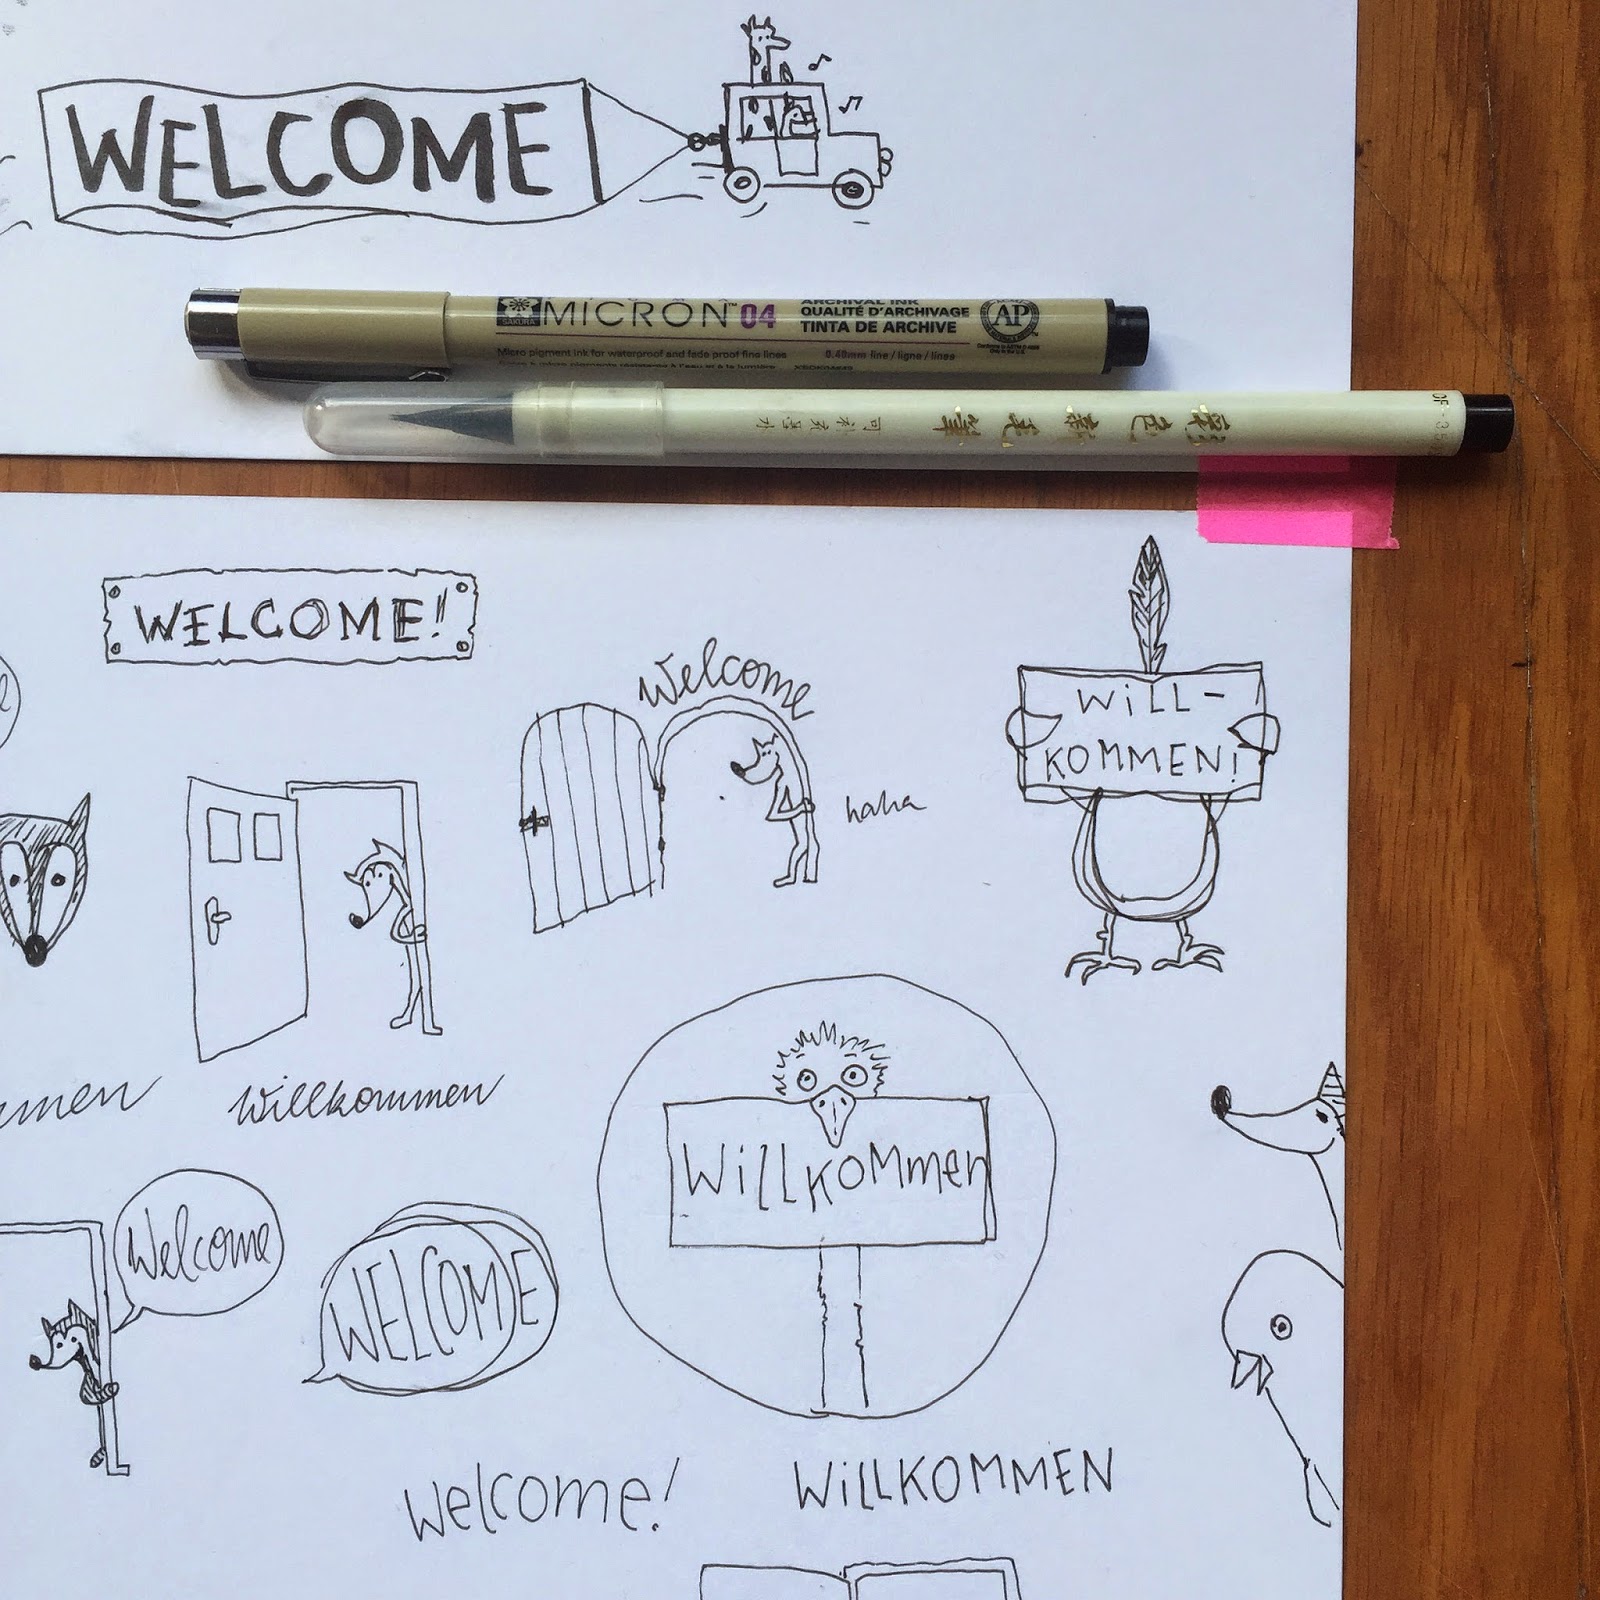 WELCOME
SAKURA
MICRON™ 04
ARCHIVAL INK
QUALITÉ D'ARCHIVAGE
TINTA DE ARCHIVE
AP
Micro pigment ink for waterproof and fade proof fine lines
0.40mm fine / ligne / lines
彩色新毛筆
WELCOME!
Welcome
haha
WiLL-
KOMMEN!
Willkommen
Willkommen
Welcome
WELCOME
Welcome!
WiLLKOMMEN